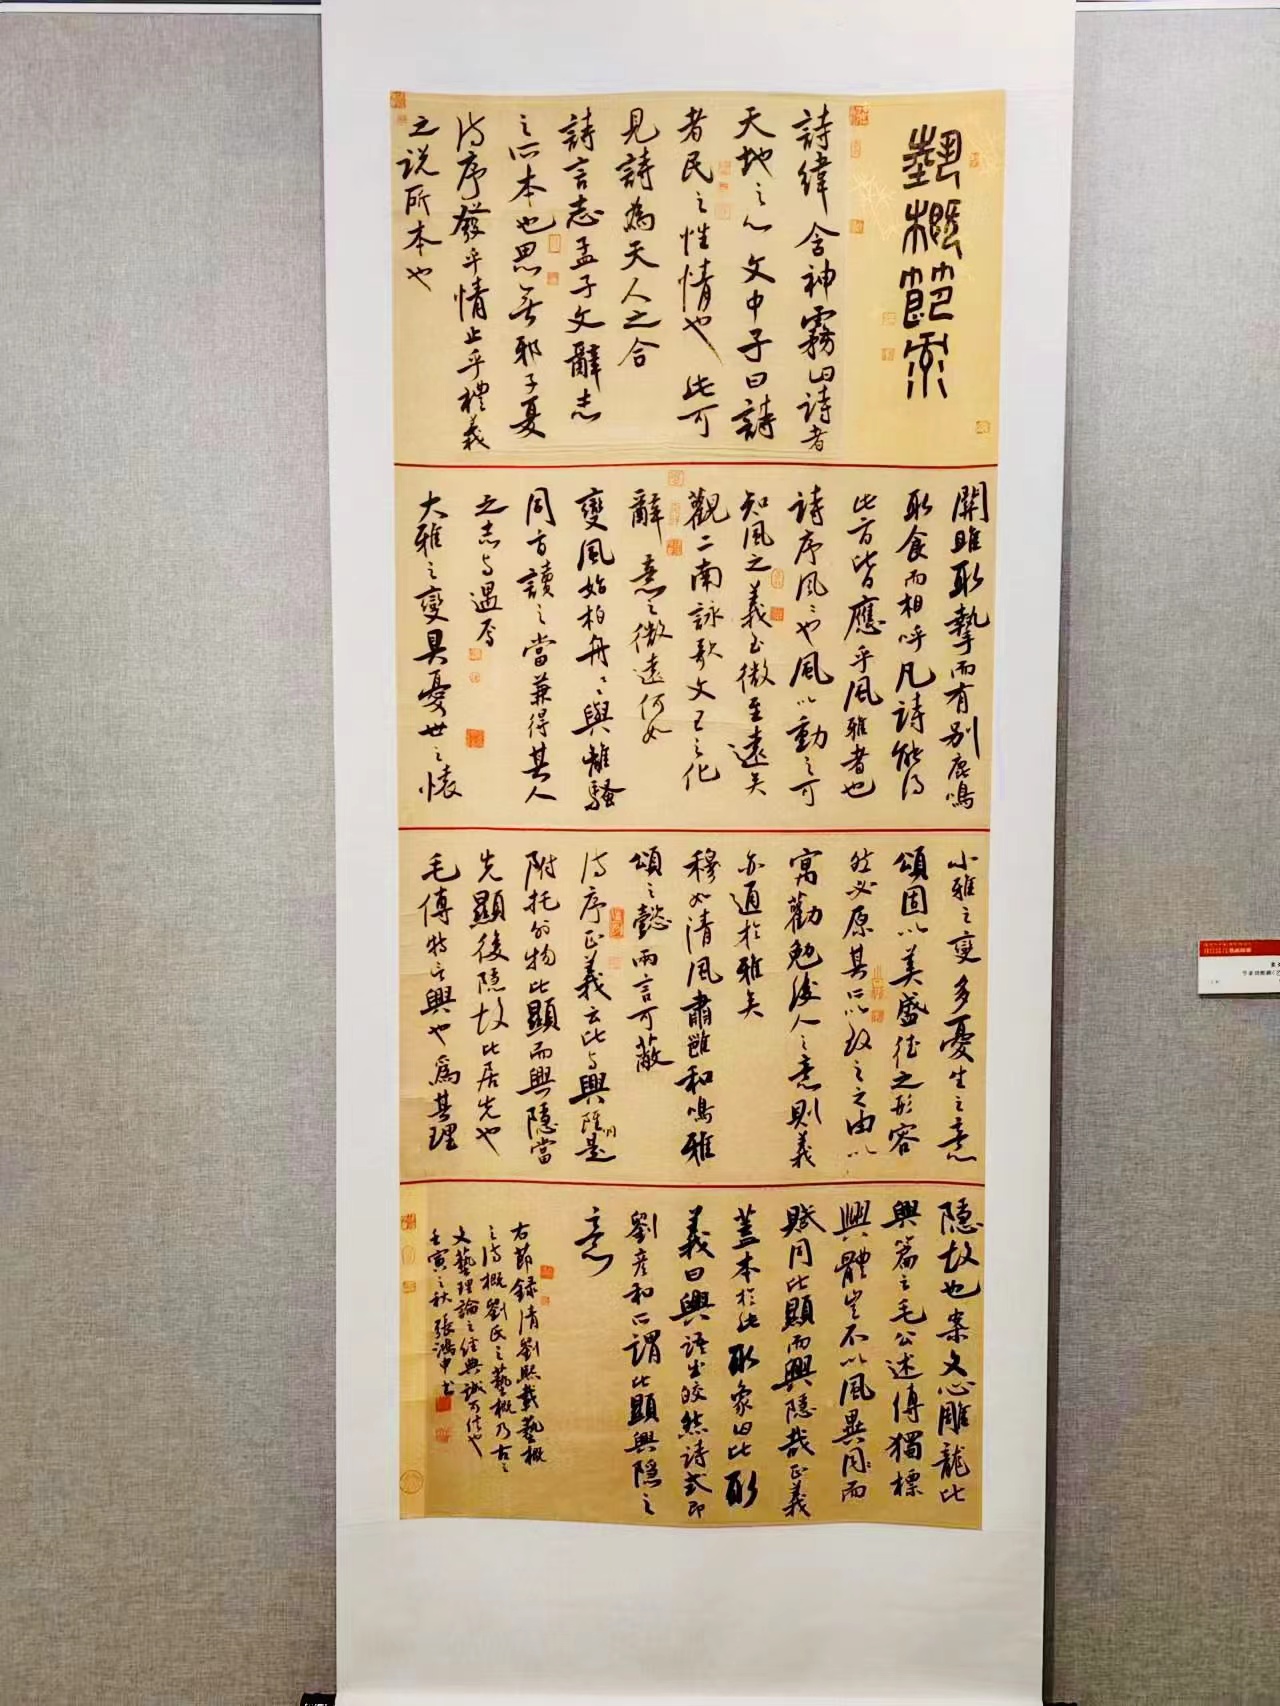 藝概節录
詩緯含神霧曰詩者
天地之心文中子曰詩
者民之性情也此可
見詩為天人之合
詩言志孟子文辭志
之所本也思無邪子夏
詩序發乎情止乎禮義
之说所本也
關雎取摯而有别鹿鳴
取食而相呼凡詩能得
此方皆應乎風雅者也
詩序風風也風以動之可
知風之義至微至遠矣
觀二南詠歌文王之化
辭意之微遠何如
變風始柏舟柏舟與離騷
同方讀之當兼得其人
之志与遇焉
大雅之變具憂世之懐
小雅之變多憂生之意
頌固以美盛德之形容
然必原其所以致之之由以
寓勸勉後人之意則義
亦通於雅矣
穆如清風肅雝和鳴雅
頌之懿兩言可蔽
詩序正義云比与興雖同是
附托外物比顯而興隱當
先顯後隱故比居先也
毛傳特言興也為其理
隱故也案文心雕龍比
興篇云毛公述傳獨標
興體豈不以風異同而
賦同比顯而興隱哉正義
蓋本於此取象曰比取
義曰興語出皎然詩式即
劉彦和所謂比顯興隱之
意
右節録清劉熙載藝概
之詩概劉氏之藝概乃古之
文藝理論之经典誠可法也
壬寅之秋張鴻申书